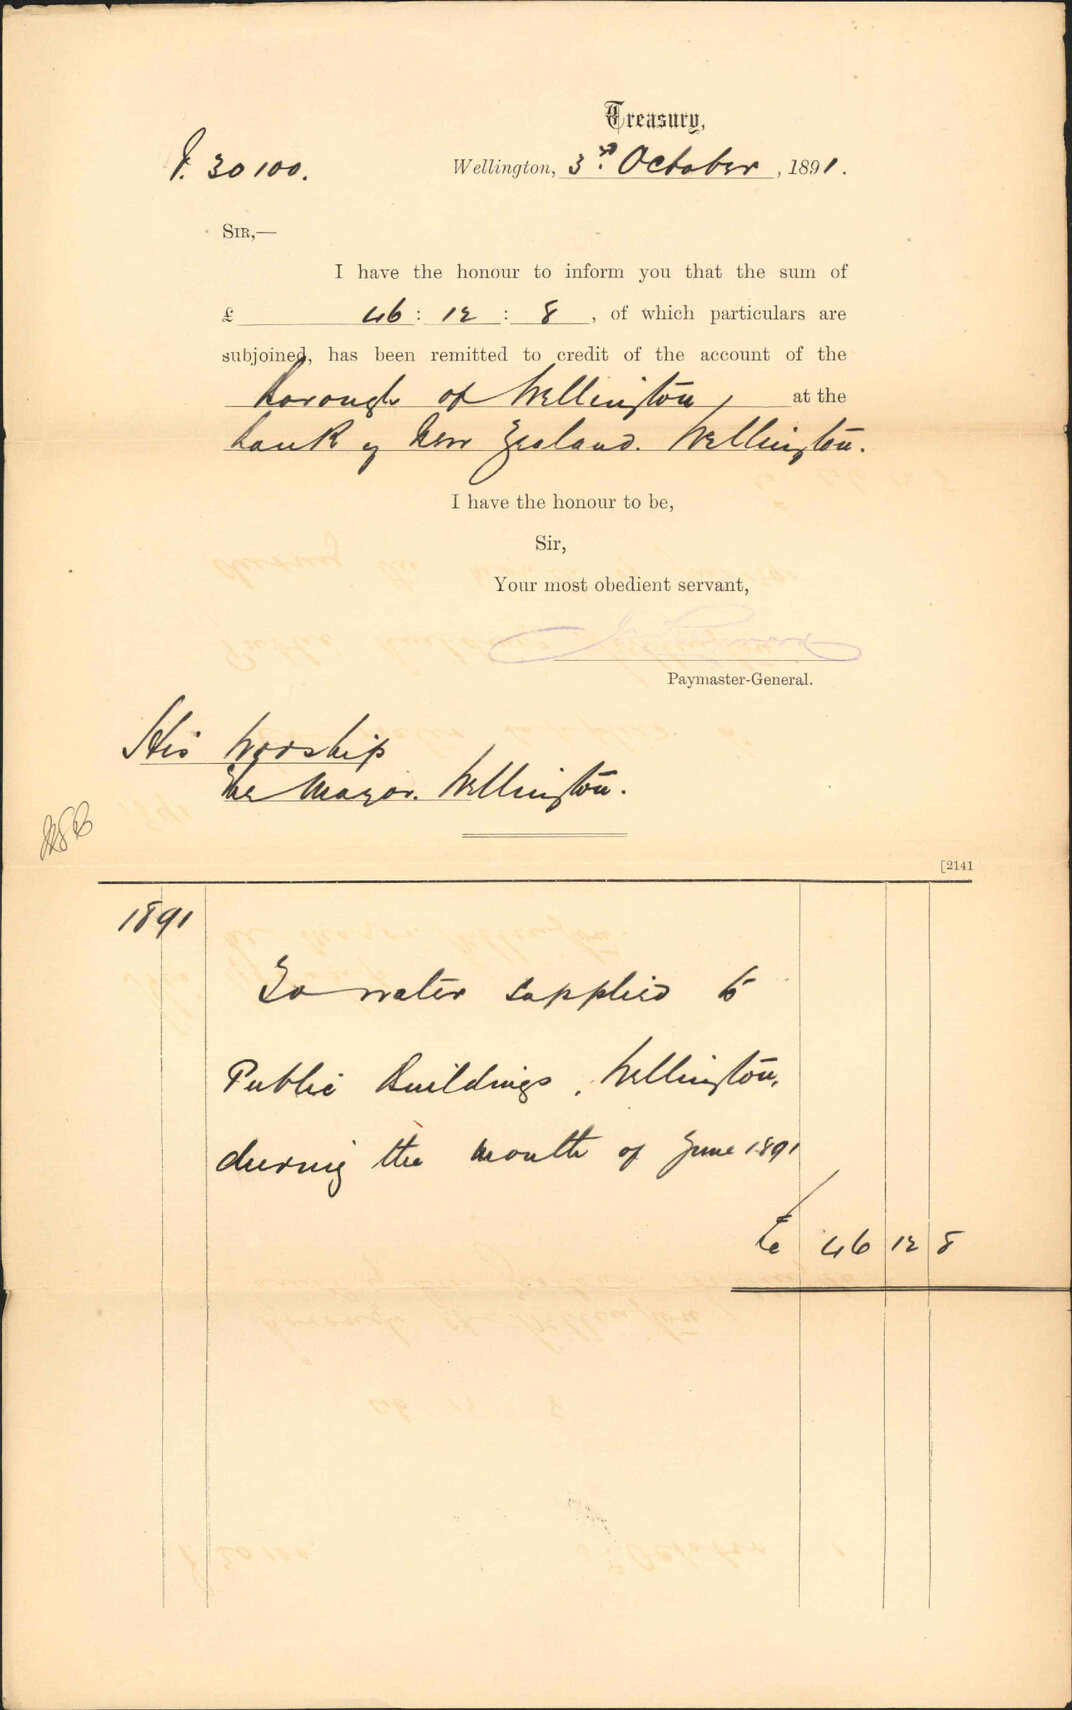 Treasury,
30100. Wellington, 3rd October, 1891.
SIR,—
I have the honour to inform you that the sum of
£ 46 : 12 : 8, of which particulars are
subjoined, has been remitted to credit of the account of the
borough of Wellington, at the
bank of New Zealand. Wellington.
I have the honour to be,
Sir,
Your most obedient servant,
Paymaster-General.
His Worship
The Mayor. Wellington.
[2141
1891
To water supplied to
Public Buildings, Wellington,
during the month of June 1891
£ 46 12 8